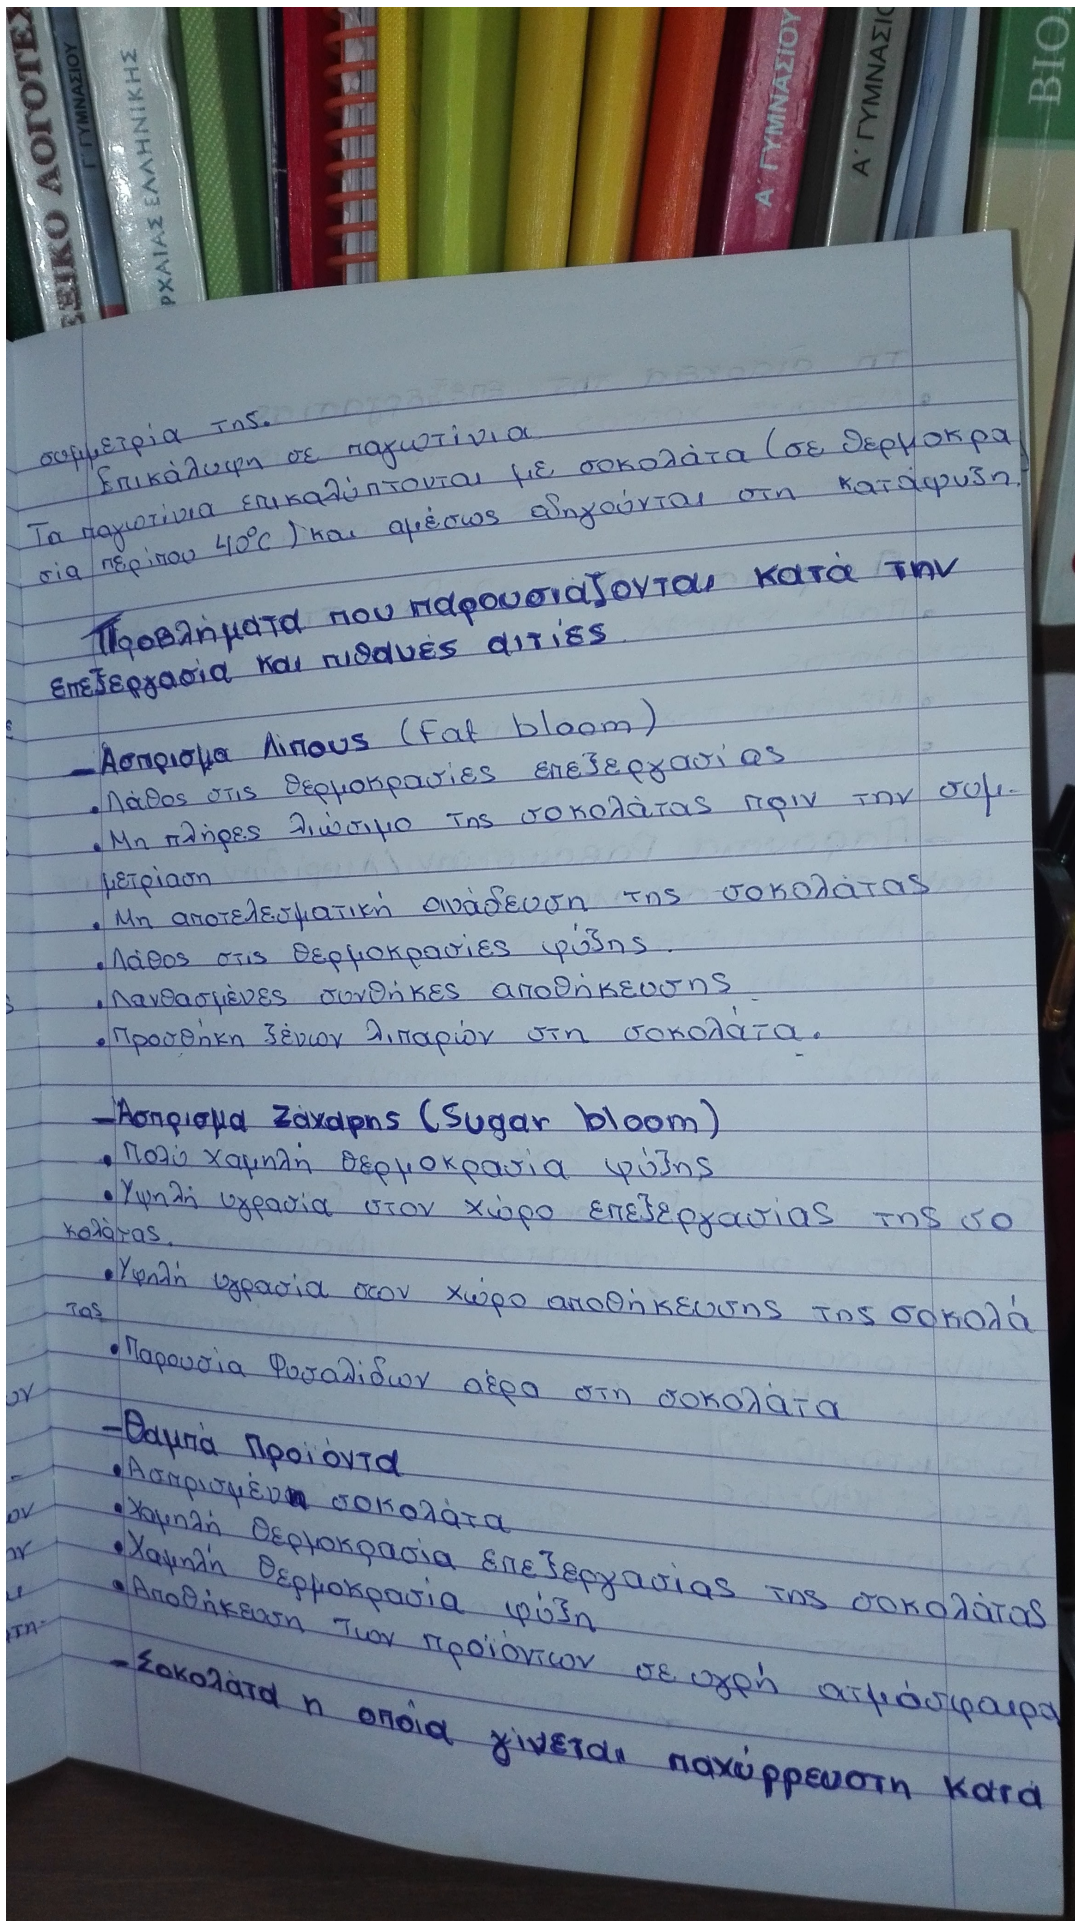 ΞΙΚΟ ΛΟΓΟΤΕΧ
Γ' ΓΥΜΝΑΣΙΟΥ
ΡΧΑΙΑΣ ΕΛΛΗΝΙΚΗΣ
Α' ΓΥΜΝΑΣΙΟΥ
Α' ΓΥΜΝΑΣΙΟ
ΒΙΟ
συμμετρία της.
Επικάλυψη σε παγωτίνια
Τα παγωτίνια επικαλύπτονται με σοκολάτα (σε θερμοκρα
σία περίπου 40°C) και αμέσως οδηγούνται στη κατάψυξη.
Προβλήματα που παρουσιάζονται κατά την
επεξεργασία και πιθανές αιτίες
- Άσπρισμα λίπους (Fat bloom)
• Λάθος στις θερμοκρασίες επεξεργασίας
• Μη πλήρες λιώσιμο της σοκολάτας πριν την συμ-
μετρίαση
• Μη αποτελεσματική ανάδευση της σοκολάτας
• Λάθος στις θερμοκρασίες ψύξης.
• Λανθασμένες συνθήκες αποθήκευσης
• Προσθήκη ξένων λιπαρών στη σοκολάτα.
- Άσπρισμα Ζάχαρης (Sugar bloom)
• Πολύ χαμηλή θερμοκρασία ψύξης
• Υψηλή υγρασία στον χώρο επεξεργασίας της σο
κολάτας.
• Υψηλή υγρασία στον χώρο αποθήκευσης της σοκολά
τας
• Παρουσία Φυσαλίδων αέρα στη σοκολάτα
- Θαμπά Προϊόντα
• Ασπρισμένη σοκολάτα
• Χαμηλή θερμοκρασία επεξεργασίας της σοκολάτας
• Χαμηλή θερμοκρασία ψύξη
• Αποθήκευση των προϊόντων σε υγρή ατμόσφαιρα
- Σοκολάτα η οποία γίνεται παχύρρευστη κατά